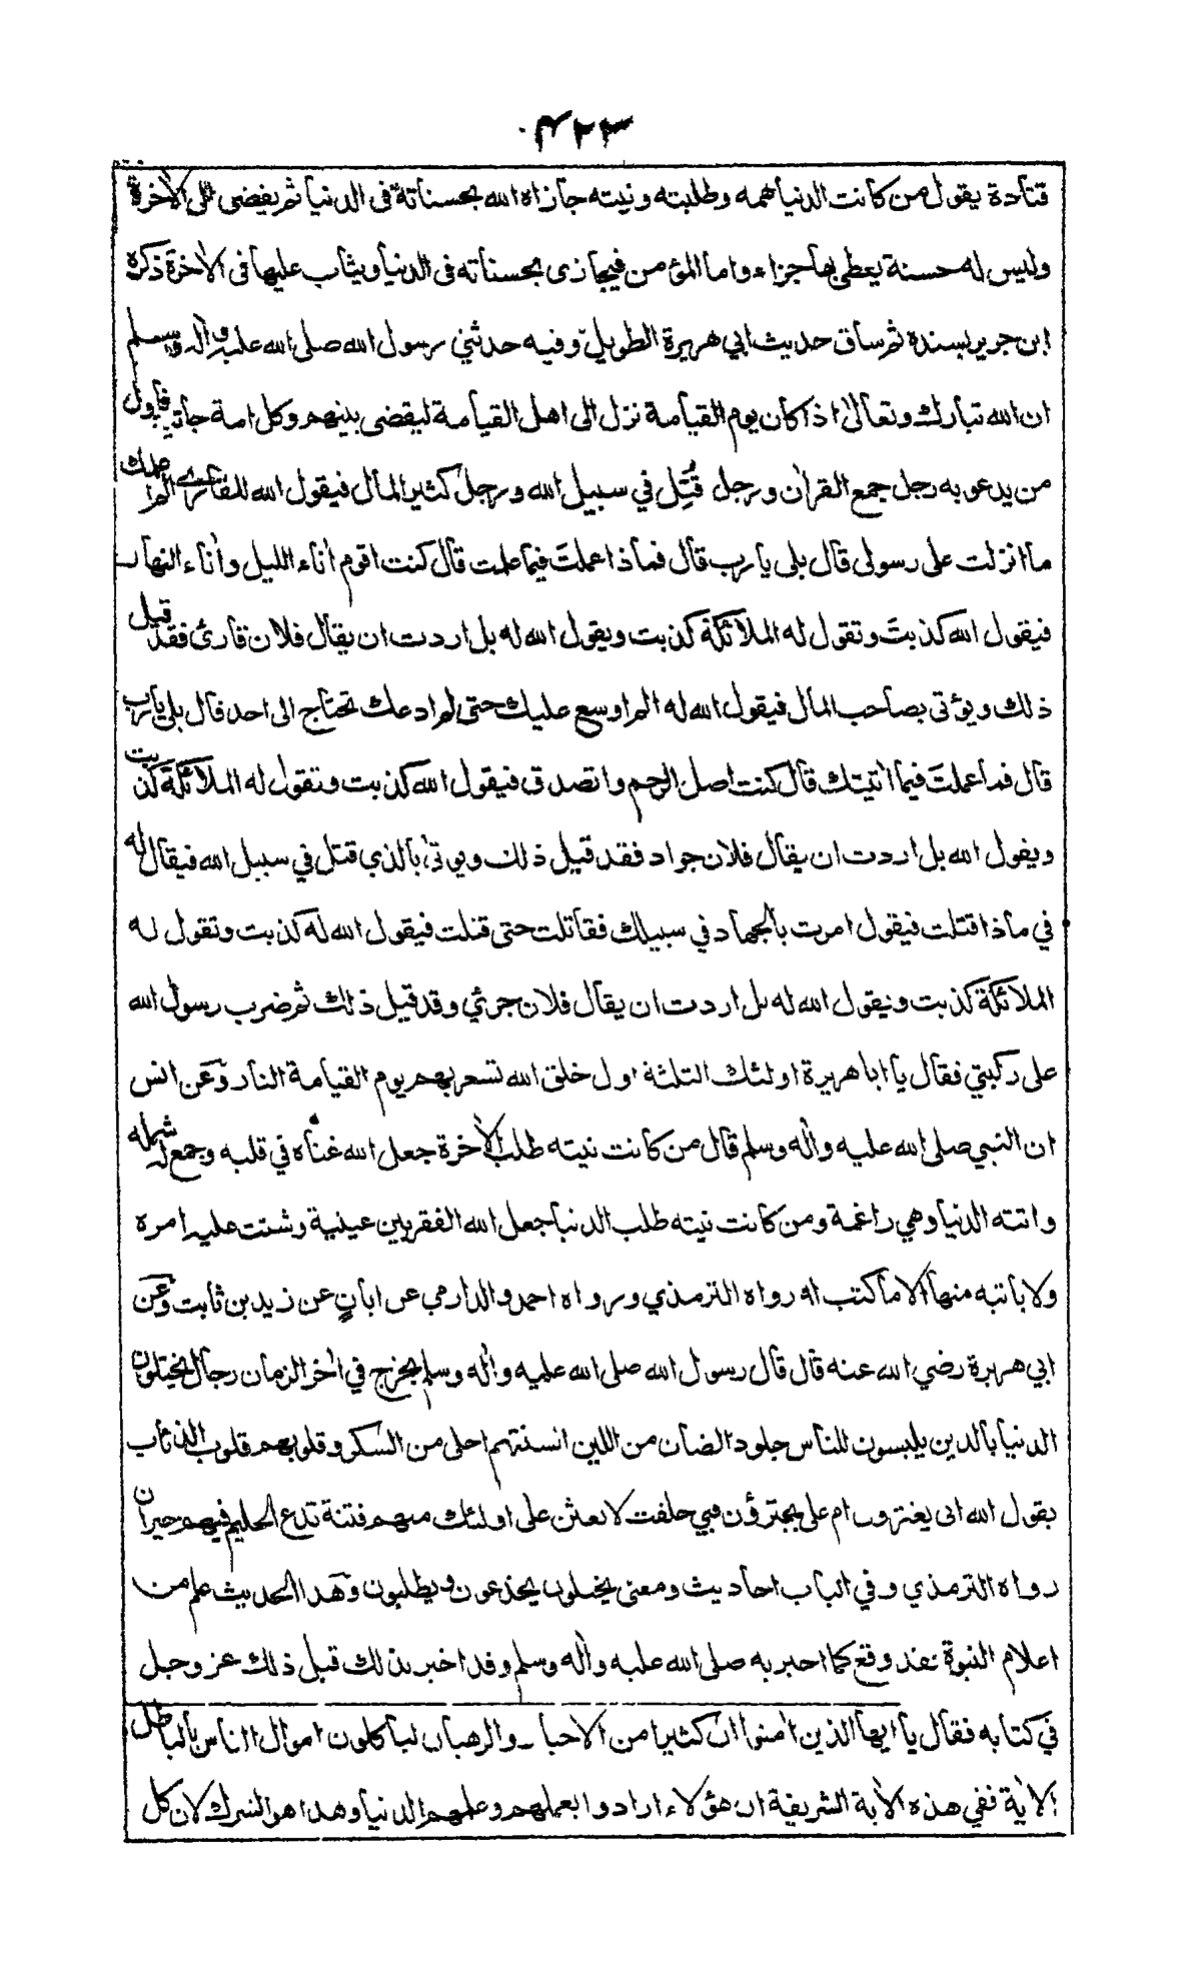 ۴۲۳
قتادة يقول من كانت الدنيا همه وطلبته ونيته جازاه الله بحسناته في الدنيا ثم يفضى الى الاٰخرة
وليس له حسنة يعطى بها جزاء واما المؤمن فيجازى بحسناته في الدنيا ويثاب عليها فى الاٰخرة ذكره
ابن جرير بسنده ثم ساق حديث ابي هريرة الطويل وفيه حدثني رسول الله صلى الله عليه واٰله وسلم
ان الله تبارك وتعالىٰ اذا كان يوم القيامة نزل الى اهل القيامة ليقضى بينهم وكل امة جاثية فاول
من يدعو به رجل جمع القراٰن ورجل قُتِل في سبيل الله ورجل كثير المال فيقول الله للقارئ الم اعلمك
ما انزلت على رسولى قال بلى يا رب قال فماذا عملتَ فيما علمت قال كنت اقوم اٰناء الليل واٰناء النهار
فيقول الله كذبتَ وتقول له الملائكة كذبت ويقول الله له بل اردت ان يقال فلان قارئ فقد قيل
ذلك ويؤتى بصاحب المال فيقول الله له الم اوسع عليك حتى لم ادعك تحتاج الى احد قال بلى يا رب
قال فما عملتَ فيما اٰتيتك قال كنت اصل الرحم واتصدق فيقول الله كذبت وتقول له الملائكة كذبت
ويقول الله بل اردت ان يقال فلان جواد فقد قيل ذلك ويوتىٰ بالذي قتل في سبيل الله فيقال له
في ماذا قتلت فيقول امرت بالجهاد في سبيلك فقاتلت حتى قتلت فيقول الله له كذبت وتقول له
الملائكة كذبت ويقول الله له بل اردت ان يقال فلان جرئي وقد قيل ذلك ثم ضرب رسول الله
على ركبتي فقال يا ابا هريرة اولئك الثلثة اول خلق الله تسعر بهم يوم القيامة النار وعن انس
ان النبي صلى الله عليه واٰله وسلم قال من كانت نيته طلب الاٰخرة جعل الله غناه في قلبه وجمع له شمله
واتته الدنيا وهي راغمة ومن كانت نيته طلب الدنيا جعل الله الفقر بين عينية وشتت عليه امره
ولا ياتيه منها الا ما كتب له رواه الترمذي ورواه احمد والدارمي عن ابانٍ عن زيد بن ثابت وعن
ابي هريرة رضي الله عنه قال قال رسول الله صلى الله عليه واٰله وسلم يخرج في اٰخر الزمان رجال يختلون
الدنيا بالدين يلبسون للناس جلود الضان من اللين السنتهم احلى من السكر وقلوبهم قلوب الذئاب
يقول الله ابى يغترون ام على يجترؤن فبي حلفت لابعثن على اولئك منهم فتنة تدع الحليم فيهم حيران
رواه الترمذي وفي الباب احاديث ومعنى يختلون يخدعون ويطلبون وهذا الحديث علم من
اعلام النبوة فقد وقع كما اخبر به صلى الله عليه واٰله وسلم وقد اخبر بذلك قبل ذلك عز وجل
في كتابه فقال يا ايها الذين اٰمنوا ان كثيرا من الاحبار والرهبان لياكلون اموال الناس بالباطل
الاٰية ففي هذه الاٰية الشريفة ان هؤلاء ارادوا بعملهم وعلمهم الدنيا وهذا هو الشرك لان كل